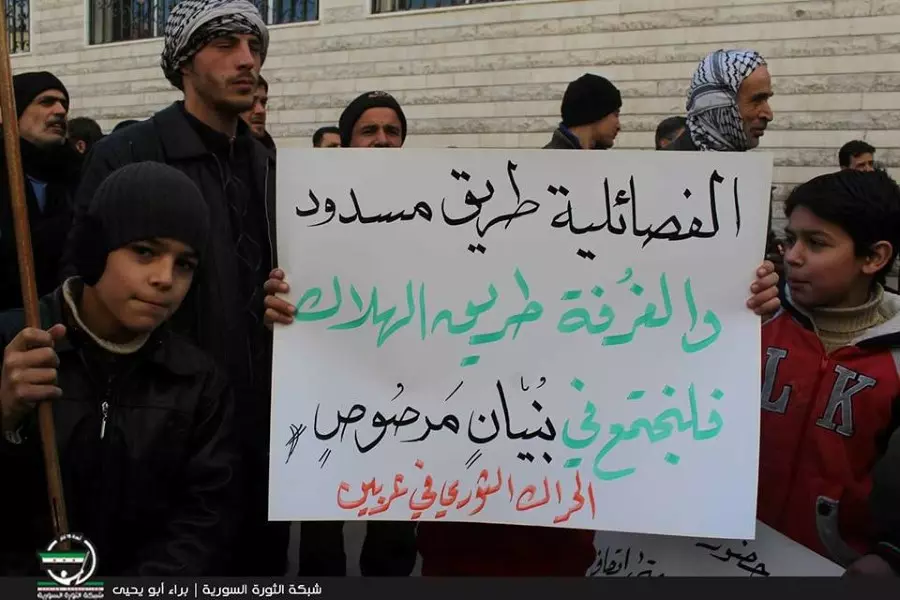 الفصائلية طريق مسدود
والفُرقة طريق الهلاك
فلنجتمع في بُنيَانٍ مَرصُوصٍ *
الحراك الثوري في عربين
L K
شبكة الثورة السورية | براء أبو يحيى